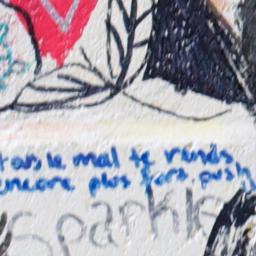 tous le mal te rends
encore plus fors push
Sparkle